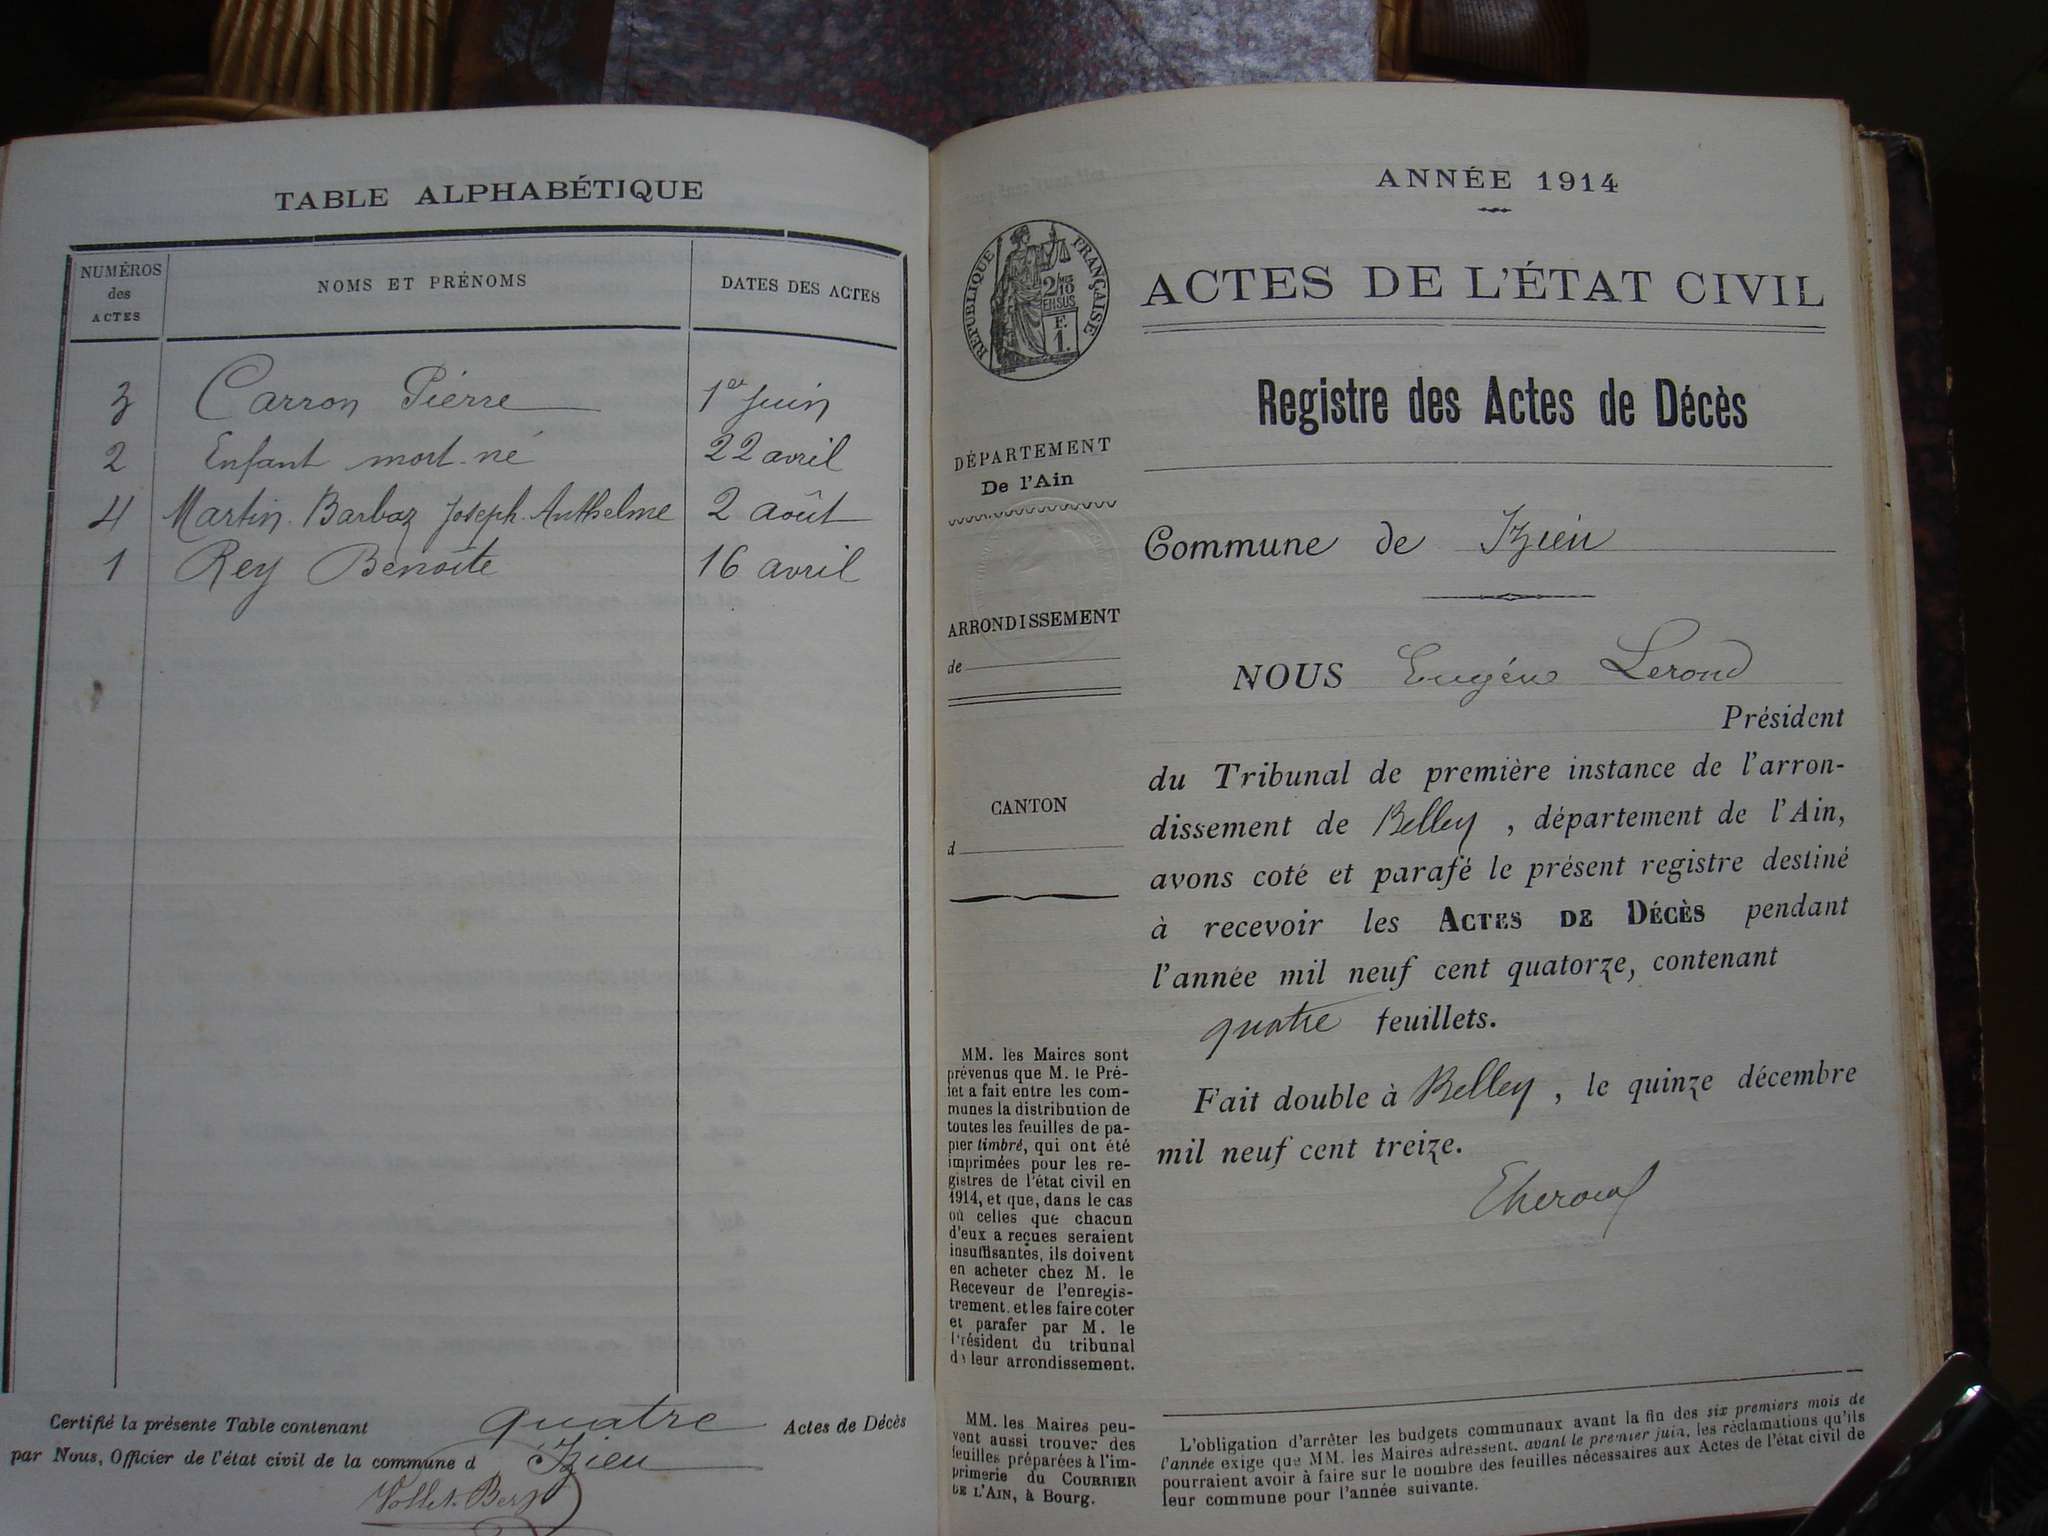 TABLE ALPHABÉTIQUE
NUMÉROS des ACTES NOMS ET PRÉNOMS DATES DES ACTES
3 Carron Pierre 1er juin
2 Enfant mort-né 22 avril
4 Martin-Barbaz Joseph-Anthelme 2 août
1 Rey Benoîte 16 avril
Certifié la présente Table contenant quatre Actes de Décès
par Nous, Officier de l'état civil de la commune d Izieu
ANNÉE 1914
RÉPUBLIQUE FRANÇAISE
2/10
EN SUS
F.
1.
ACTES DE L'ÉTAT CIVIL
Registre des Actes de Décès
DÉPARTEMENT
De l'Ain
Commune de Izieu
ARRONDISSEMENT
de
CANTON
d
NOUS Eugène Leroud
Président
du Tribunal de première instance de l'arron-
dissement de Belley, département de l'Ain,
avons coté et parafé le présent registre destiné
à recevoir les ACTES DE DÉCÈS pendant
l'année mil neuf cent quatorze, contenant
quatre feuillets.
Fait double à Belley, le quinze décembre
mil neuf cent treize.
MM. les Maires sont
prévenus que M. le Pré-
fet a fait entre les com-
munes la distribution de
toutes les feuilles de pa-
pier timbré, qui ont été
imprimées pour les re-
gistres de l'état civil en
1914, et que, dans le cas
où celles que chacun
d'eux a reçues seraient
insuffisantes, ils doivent
en acheter chez M. le
Receveur de l'enregis-
trement, et les faire coter
et parafer par M. le
Président du tribunal
de leur arrondissement.
MM. les Maires peu-
vent aussi trouver des
feuilles préparées à l'im-
primerie du COURRIER
DE L'AIN, à Bourg.
L'obligation d'arrêter les budgets communaux avant la fin des six premiers mois de
l'année exige que MM. les Maires adressent, avant le premier juin, les réclamations qu'ils
pourraient avoir à faire sur le nombre des feuilles nécessaires aux Actes de l'état civil de
leur commune pour l'année suivante.